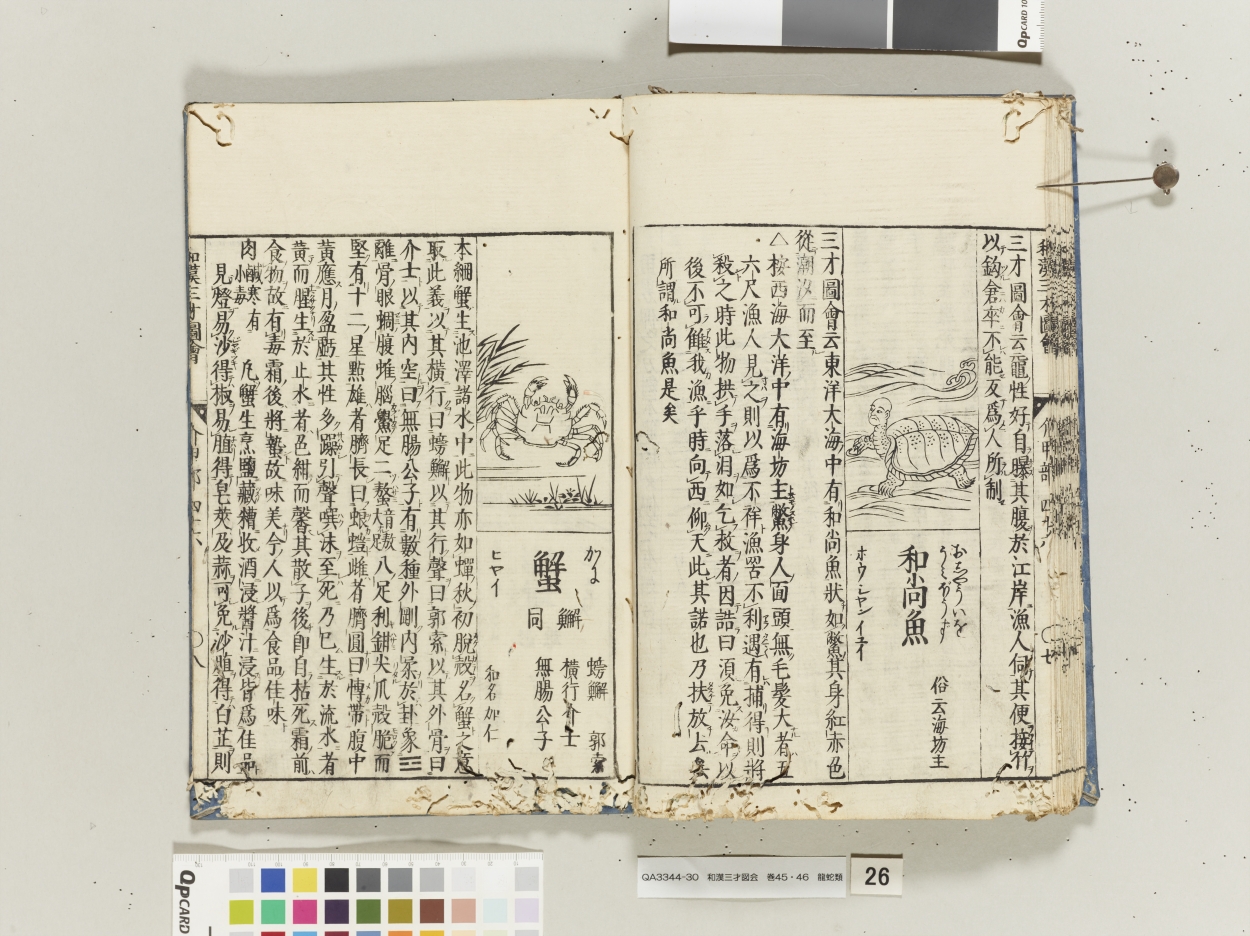 三才圖會云黿性好自曝其腹於江岸漁人伺其便接竹
以鈎倉卒不能反爲人所制
おしやういを
うみぼうず
和尚魚
俗云海坊主
ホウ シヤン イユイ
三才圖會云東洋大海中有和尚魚狀如鱉其身紅赤色
從潮汐而至
△按西海大洋中有海坊主鱉身人面頭無毛髮大者五
六尺漁人見之則以爲不祥漁罟不利遇有捕得則將
殺之時此物拱手落泪如乞救者因誥曰須免汝命以
後不可讎我漁乎時向西仰天此其諾也乃扶放去矣
所謂和尚魚是矣
かに
蟹
蠏
同
螃蠏 郭索
橫行介士
無腸公子
和名加仁
ヒヤイ
本綱蟹生池澤諸水中此物亦如蟬秋初脫殼名蟹之意
取此義以其橫行曰螃蠏以其行聲曰郭索以其外骨曰
介士以其内空曰無腸公子有數種外剛内柔於卦象☲
離骨眼蜩腹𧊅腦鱟足二螯八足利鉗尖爪殼脆而
堅有十二星㸃雄者臍長曰蜋螘雌者臍圓曰博帶腹中
黃應月盈虧其性多躁引聲噀沫至死乃已生於流水者
黃而腥生於止水者色紺而馨其散子後卽自枯死霜前
食物故有毒霜後將蟄故味美今人以爲食品佳味
肉 鹹寒有
小毒
凡蟹生烹鹽藏糟收酒浸醬汁浸皆爲佳品
見燈易沙得椒易䐈得皂莢及蒜可免沙䐈得白芷則
和漢三才圖會
介甲部 四十六
○八
和漢三才圖會
介甲部 四十六
○七
QPCARD 10
QPCARD
QA3344-30 和漢三才図会 巻45・46 龍蛇類
26